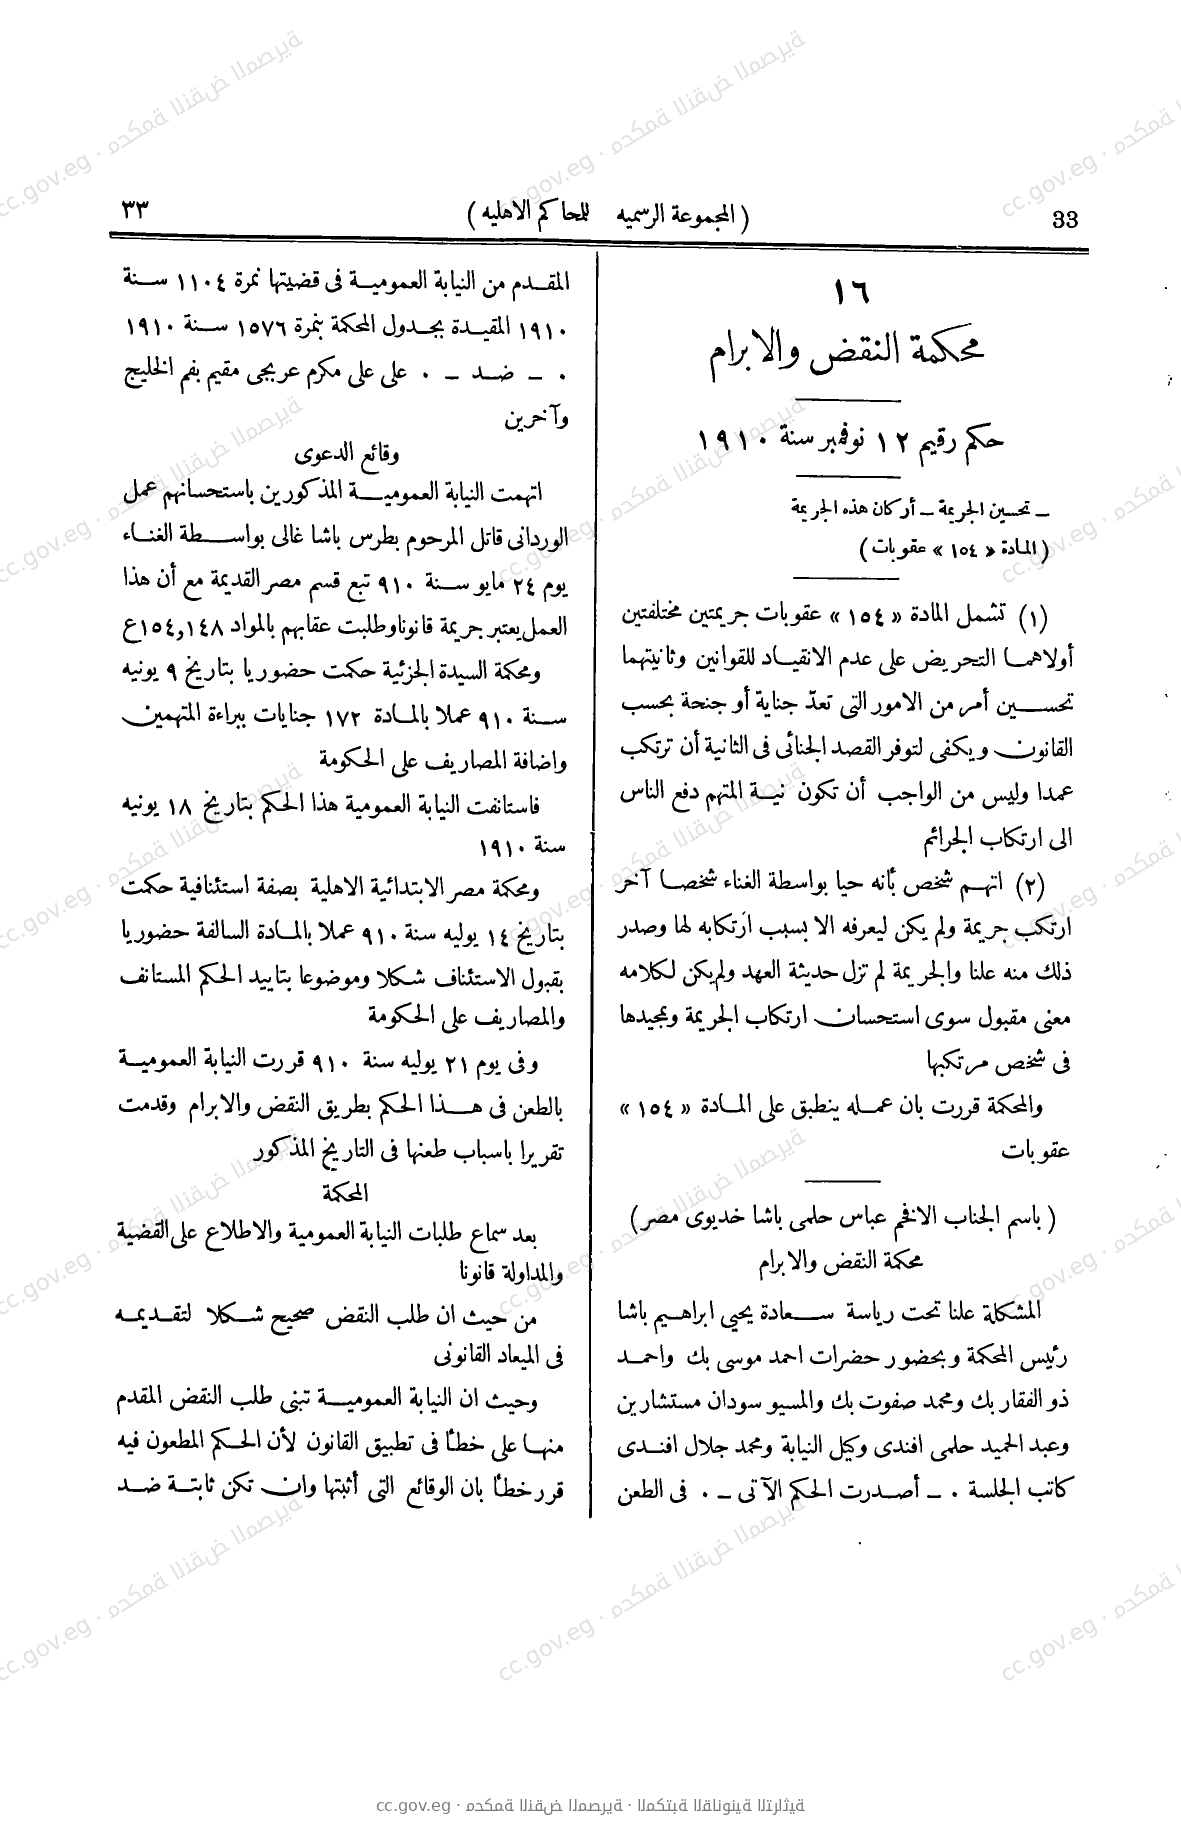 33
( المجموعة الرسميه للمحاكم الاهليه )
٣٣
١٦
محكمة النقض والابرام
حكم رقيم ١٢ نوفمبر سنة ١٩١٠
ـ تحسين الجريمة ـ أركان هذه الجريمة
( المادة « ١٥٤ » عقوبات )
(١) تشمل المادة « ١٥٤ » عقوبات جريمتين مختلفتين
أولاهما التحريض على عدم الانقياد للقوانين وثانيتهما
تحسين أمر من الامور التى تعدّ جناية أو جنحة بحسب
القانون ويكفى لتوفر القصد الجنائى فى الثانية أن ترتكب
عمدا وليس من الواجب أن تكون نية المتهم دفع الناس
الى ارتكاب الجرائم
(٢) اتهم شخص بأنه حيا بواسطة الغناء شخصا آخر
ارتكب جريمة ولم يكن ليعرفه الا بسبب ارتكابه لها وصدر
ذلك منه علنا والجريمة لم تزل حديثة العهد ولم يكن لكلامه
معنى مقبول سوى استحسان ارتكاب الجريمة وتمجيدها
فى شخص مرتكبها
والمحكمة قررت بان عمله ينطبق على المادة « ١٥٤ »
عقوبات
( باسم الجناب الافخم عباس حلمى باشا خديوى مصر )
محكمة النقض والابرام
المشكلة علنا تحت رياسة سعادة يحيى ابراهيم باشا
رئيس المحكمة وبحضور حضرات احمد موسى بك واحمد
ذو الفقار بك ومحمد صفوت بك والمسيو سودان مستشارين
وعبد الحميد حلمى افندى وكيل النيابة ومحمد جلال افندى
كاتب الجلسة ٠ ـ أصدرت الحكم الآتى ـ ٠ فى الطعن
المقدم من النيابة العمومية فى قضيتها نمرة ١١٠٤ سنة
١٩١٠ المقيدة بجدول المحكمة بنمرة ١٥٧٦ سنة ١٩١٠
٠ ـ ضد ـ ٠ على على مكرم عربجى مقيم بفم الخليج
وآخرين
وقائع الدعوى
اتهمت النيابة العمومية المذكورين باستحسانهم عمل
الوردانى قاتل المرحوم بطرس باشا غالى بواسطة الغناء
يوم ٢٤ مايو سنة ٩١٠ تبع قسم مصر القديمة مع أن هذا
العمل يعتبر جريمة قانونا وطلبت عقابهم بالمواد ١٥٤,١٤٨ع
ومحكمة السيدة الجزئية حكمت حضوريا بتاريخ ٩ يونيه
سنة ٩١٠ عملا بالمادة ١٧٢ جنايات ببراءة المتهمين
واضافة المصاريف على الحكومة
فاستانفت النيابة العمومية هذا الحكم بتاريخ ١٨ يونيه
سنة ١٩١٠
ومحكمة مصر الابتدائية الاهلية بصفة استئنافية حكمت
بتاريخ ١٤ يوليه سنة ٩١٠ عملا بالمادة السالفة حضوريا
بقبول الاستئناف شكلا وموضوعا بتاييد الحكم المستانف
والمصاريف على الحكومة
وفى يوم ٢١ يوليه سنة ٩١٠ قررت النيابة العمومية
بالطعن فى هذا الحكم بطريق النقض والابرام وقدمت
تقريرا باسباب طعنها فى التاريخ المذكور
المحكمة
بعد سماع طلبات النيابة العمومية والاطلاع على القضية
والمداولة قانونا
من حيث ان طلب النقض صحيح شكلا لتقديمه
فى الميعاد القانونى
وحيث ان النيابة العمومية تبنى طلب النقض المقدم
منها على خطأ فى تطبيق القانون لأن الحكم المطعون فيه
قرر خطأ بان الوقائع التى أثبتها وان تكن ثابتة ضد
cc.gov.eg · محكمة النقض المصرية · المكتبة القانونية التراثية